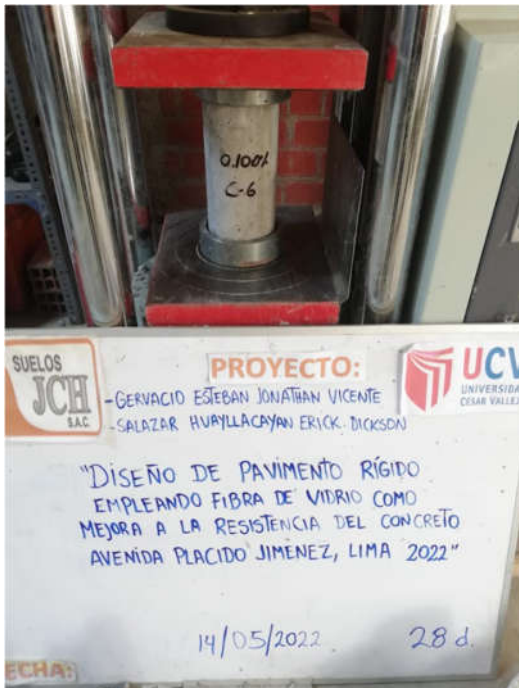 0.100%
C-6
SUELOS
JCH
S.A.C.
PROYECTO:
UCV
UNIVERSIDA
CESAR VALLEJ
-GERVACIO ESTEBAN JONATHAN VICENTE
-SALAZAR HUAYLLACAYAN ERICK DICKSON
"DISEÑO DE PAVIMENTO RÍGIDO
EMPLEANDO FIBRA DE VIDRIO COMO
MEJORA A LA RESISTENCIA DEL CONCRETO
AVENIDA PLACIDO JIMENEZ, LIMA 2022"
14/05/2022 28 d.
ECHA: